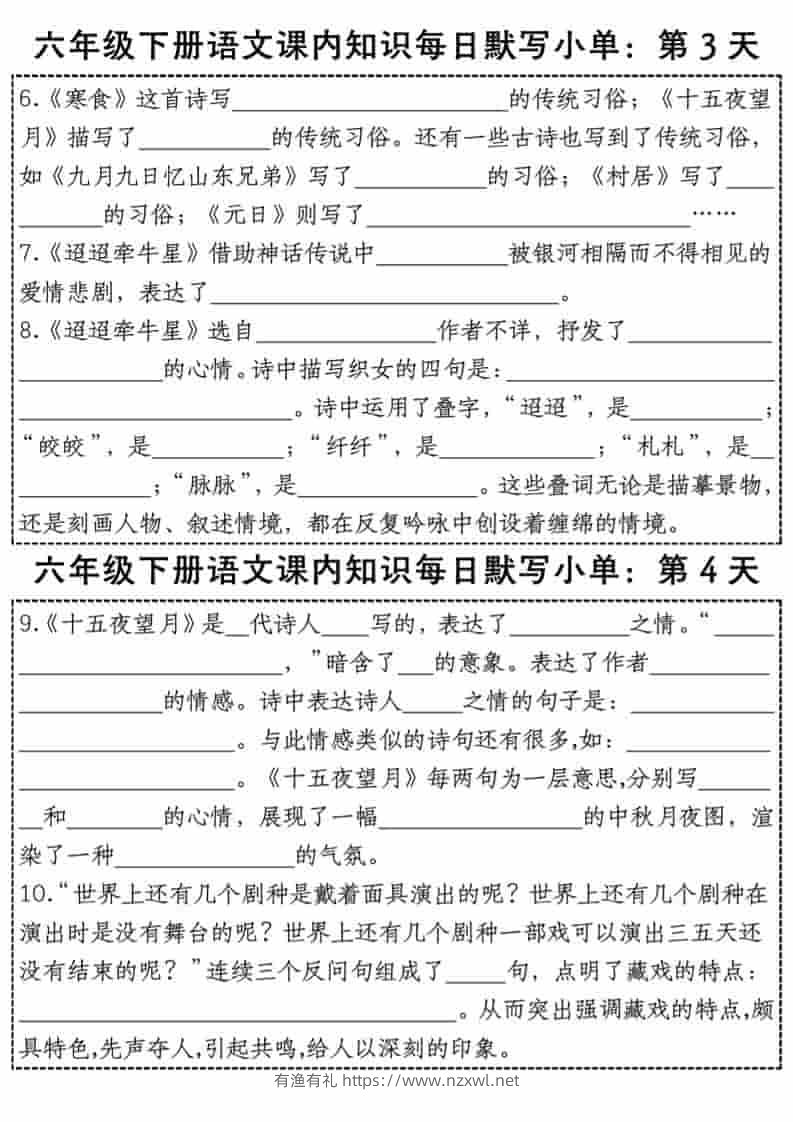 六年级下册语文课内知识每日默写小单：第 3 天
6.《寒食》这首诗写____________________的传统习俗；《十五夜望
月》描写了__________的传统习俗。还有一些古诗也写到了传统习俗，
如《九月九日忆山东兄弟》写了__________的习俗；《村居》写了____
_______的习俗；《元日》则写了________________________……
7.《迢迢牵牛星》借助神话传说中__________被银河相隔而不得相见的
爱情悲剧，表达了__________________________。
8.《迢迢牵牛星》选自______________作者不详，抒发了___________
___________的心情。诗中描写织女的四句是：____________________
____________________。诗中运用了叠字，“迢迢”，是____________；
“皎皎”，是__________；“纤纤”，是____________；“札札”，是__
__________；“脉脉”，是______________。这些叠词无论是描摹景物，
还是刻画人物、叙述情境，都在反复吟咏中创设着缠绵的情境。
六年级下册语文课内知识每日默写小单：第 4 天
9.《十五夜望月》是__代诗人____写的，表达了__________之情。“_____
____________________，”暗含了___的意象。表达了作者__________
___________的情感。诗中表达诗人_____之情的句子是：___________
________________。与此情感类似的诗句还有很多,如：____________
________________。《十五夜望月》每两句为一层意思,分别写______
__和________的心情，展现了一幅________________的中秋月夜图，渲
染了一种______________的气氛。
10.“世界上还有几个剧种是戴着面具演出的呢？世界上还有几个剧种在
演出时是没有舞台的呢？世界上还有几个剧种一部戏可以演出三五天还
没有结束的呢？”连续三个反问句组成了_____句，点明了藏戏的特点：
__________________________________。从而突出强调藏戏的特点,颇
具特色,先声夺人,引起共鸣,给人以深刻的印象。
有渔有礼 https://www.nzxwl.net